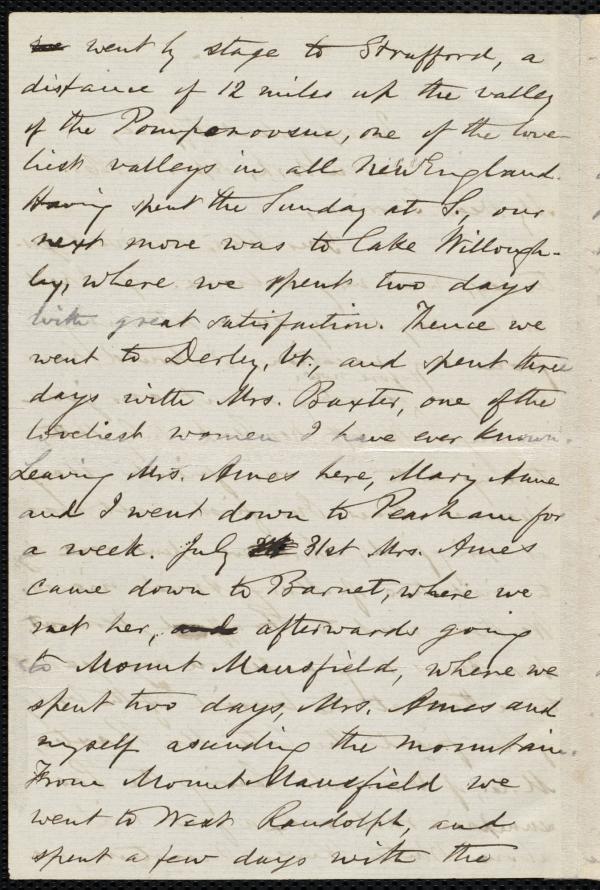 we went by stage to Strafford, a
distance of 12 miles up the valley
of the Pompanoosuc, one of the love-
liest valleys in all New England.
Having spent the Sunday at S., our
next move was to Lake Willough-
by, where we spent two days
with great satisfaction. Thence we
went to Derby, Vt., and spent three
days with Mrs. Baxter, one of the
loveliest women I have ever known.
Leaving Mrs. Ames here, Mary Anne
and I went down to Peacham for
a week. July 31st Mrs. Ames
came down to Barnet, where we
met her, and afterwards going
to Mount Mansfield, where we
spent two days, Mrs. Ames and
myself ascending the mountain.
From Mount Mansfield we
went to West Randolph, and
spent a few days with the